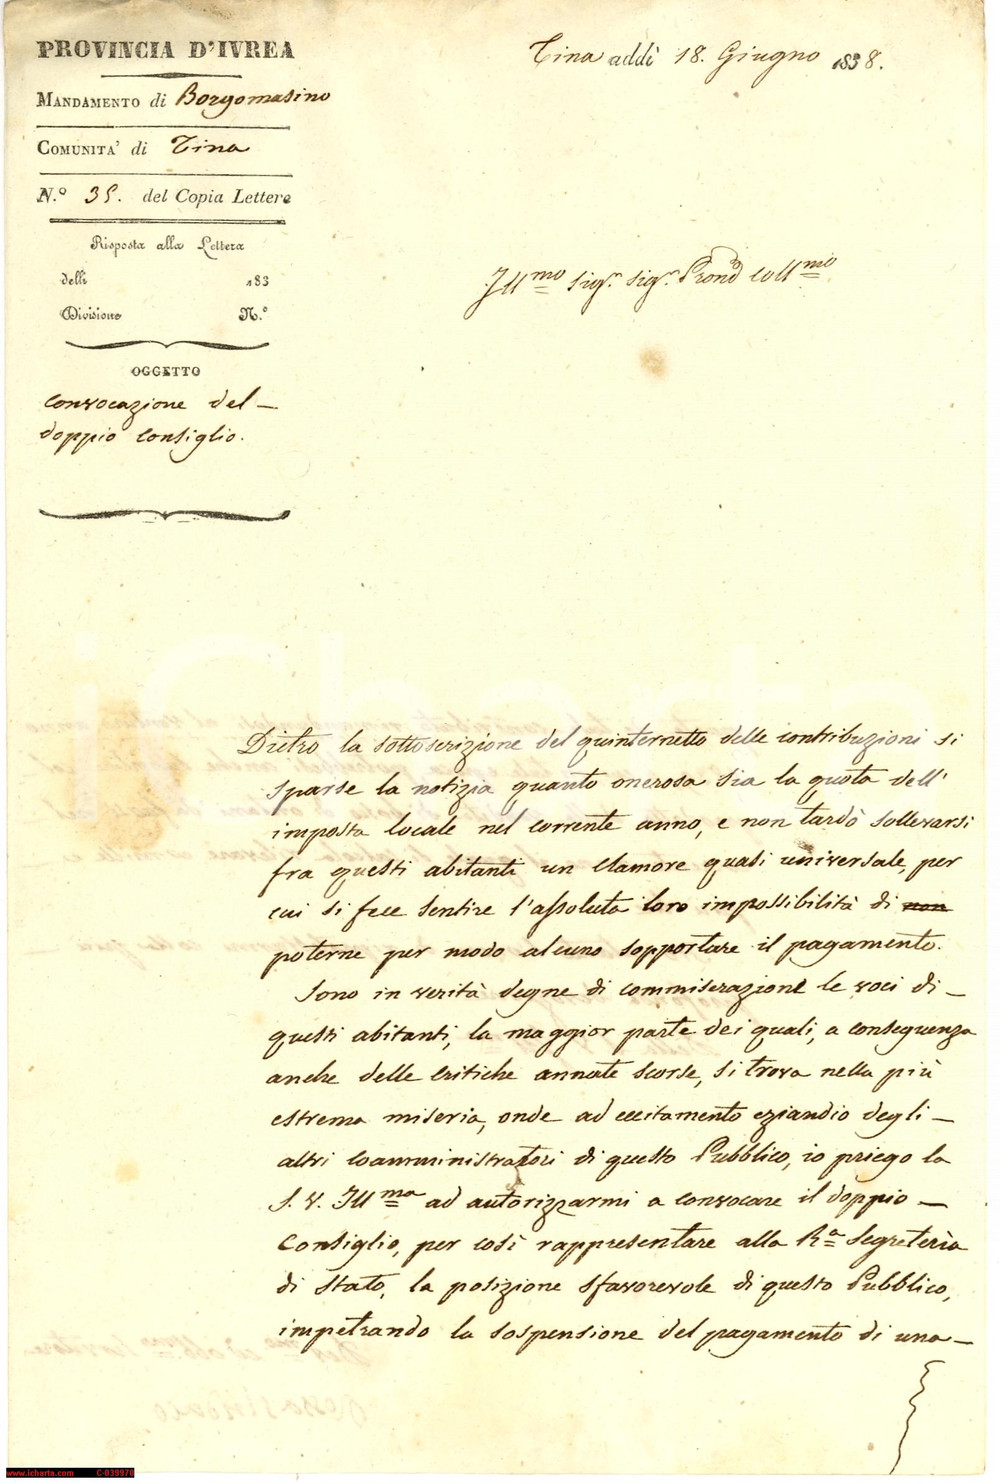 PROVINCIA D'IVREA
MANDAMENTO di Borgomasino
COMUNITA' di Tina
N.° 35. del Copia Lettere
Risposta alla Lettera
delli 183
Divisione N.°
OGGETTO
convocazione del
doppio Consiglio.
Tina addì 18. Giugno 1838.
Ill.mo Sig.r Sig.r Pron Coll.mo
Dietro la sottoscrizione del quinternetto delle contribuzioni si
sparse la notizia quanto onerosa sia la quota dell'
imposta locale nel corrente anno, e non tardò sollevarsi
fra questi abitanti un clamore quasi universale, per
cui si fece sentire l'assoluta loro impossibilità di non
poterne per modo alcuno sopportare il pagamento.
Sono in verità degne di commiserazione le voci di
questi abitanti, la maggior parte dei quali, a conseguenza
anche delle critiche annate scorse, si trova nella più
estrema miseria, onde ad eccitamento eziandio degli
altri coamministratori di questo Pubblico, io priego la
S. V. Ill.ma ad autorizzarmi a convocare il doppio
Consiglio, per così rappresentare alla R.a Segreteria
di Stato, la posizione sfavorevole di questo Pubblico,
impetrando la sospensione del pagamento di una
www.icharta.com C-039970